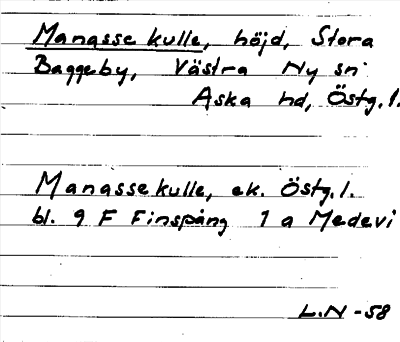 Manasse kulle, höjd, Stora
Baggeby, Västra Ny sn
Aska hd, Östg.l.
Manasse kulle, ek. Östg.l.
bl. 9 F Finspång 1 a Medevi
L.N -58